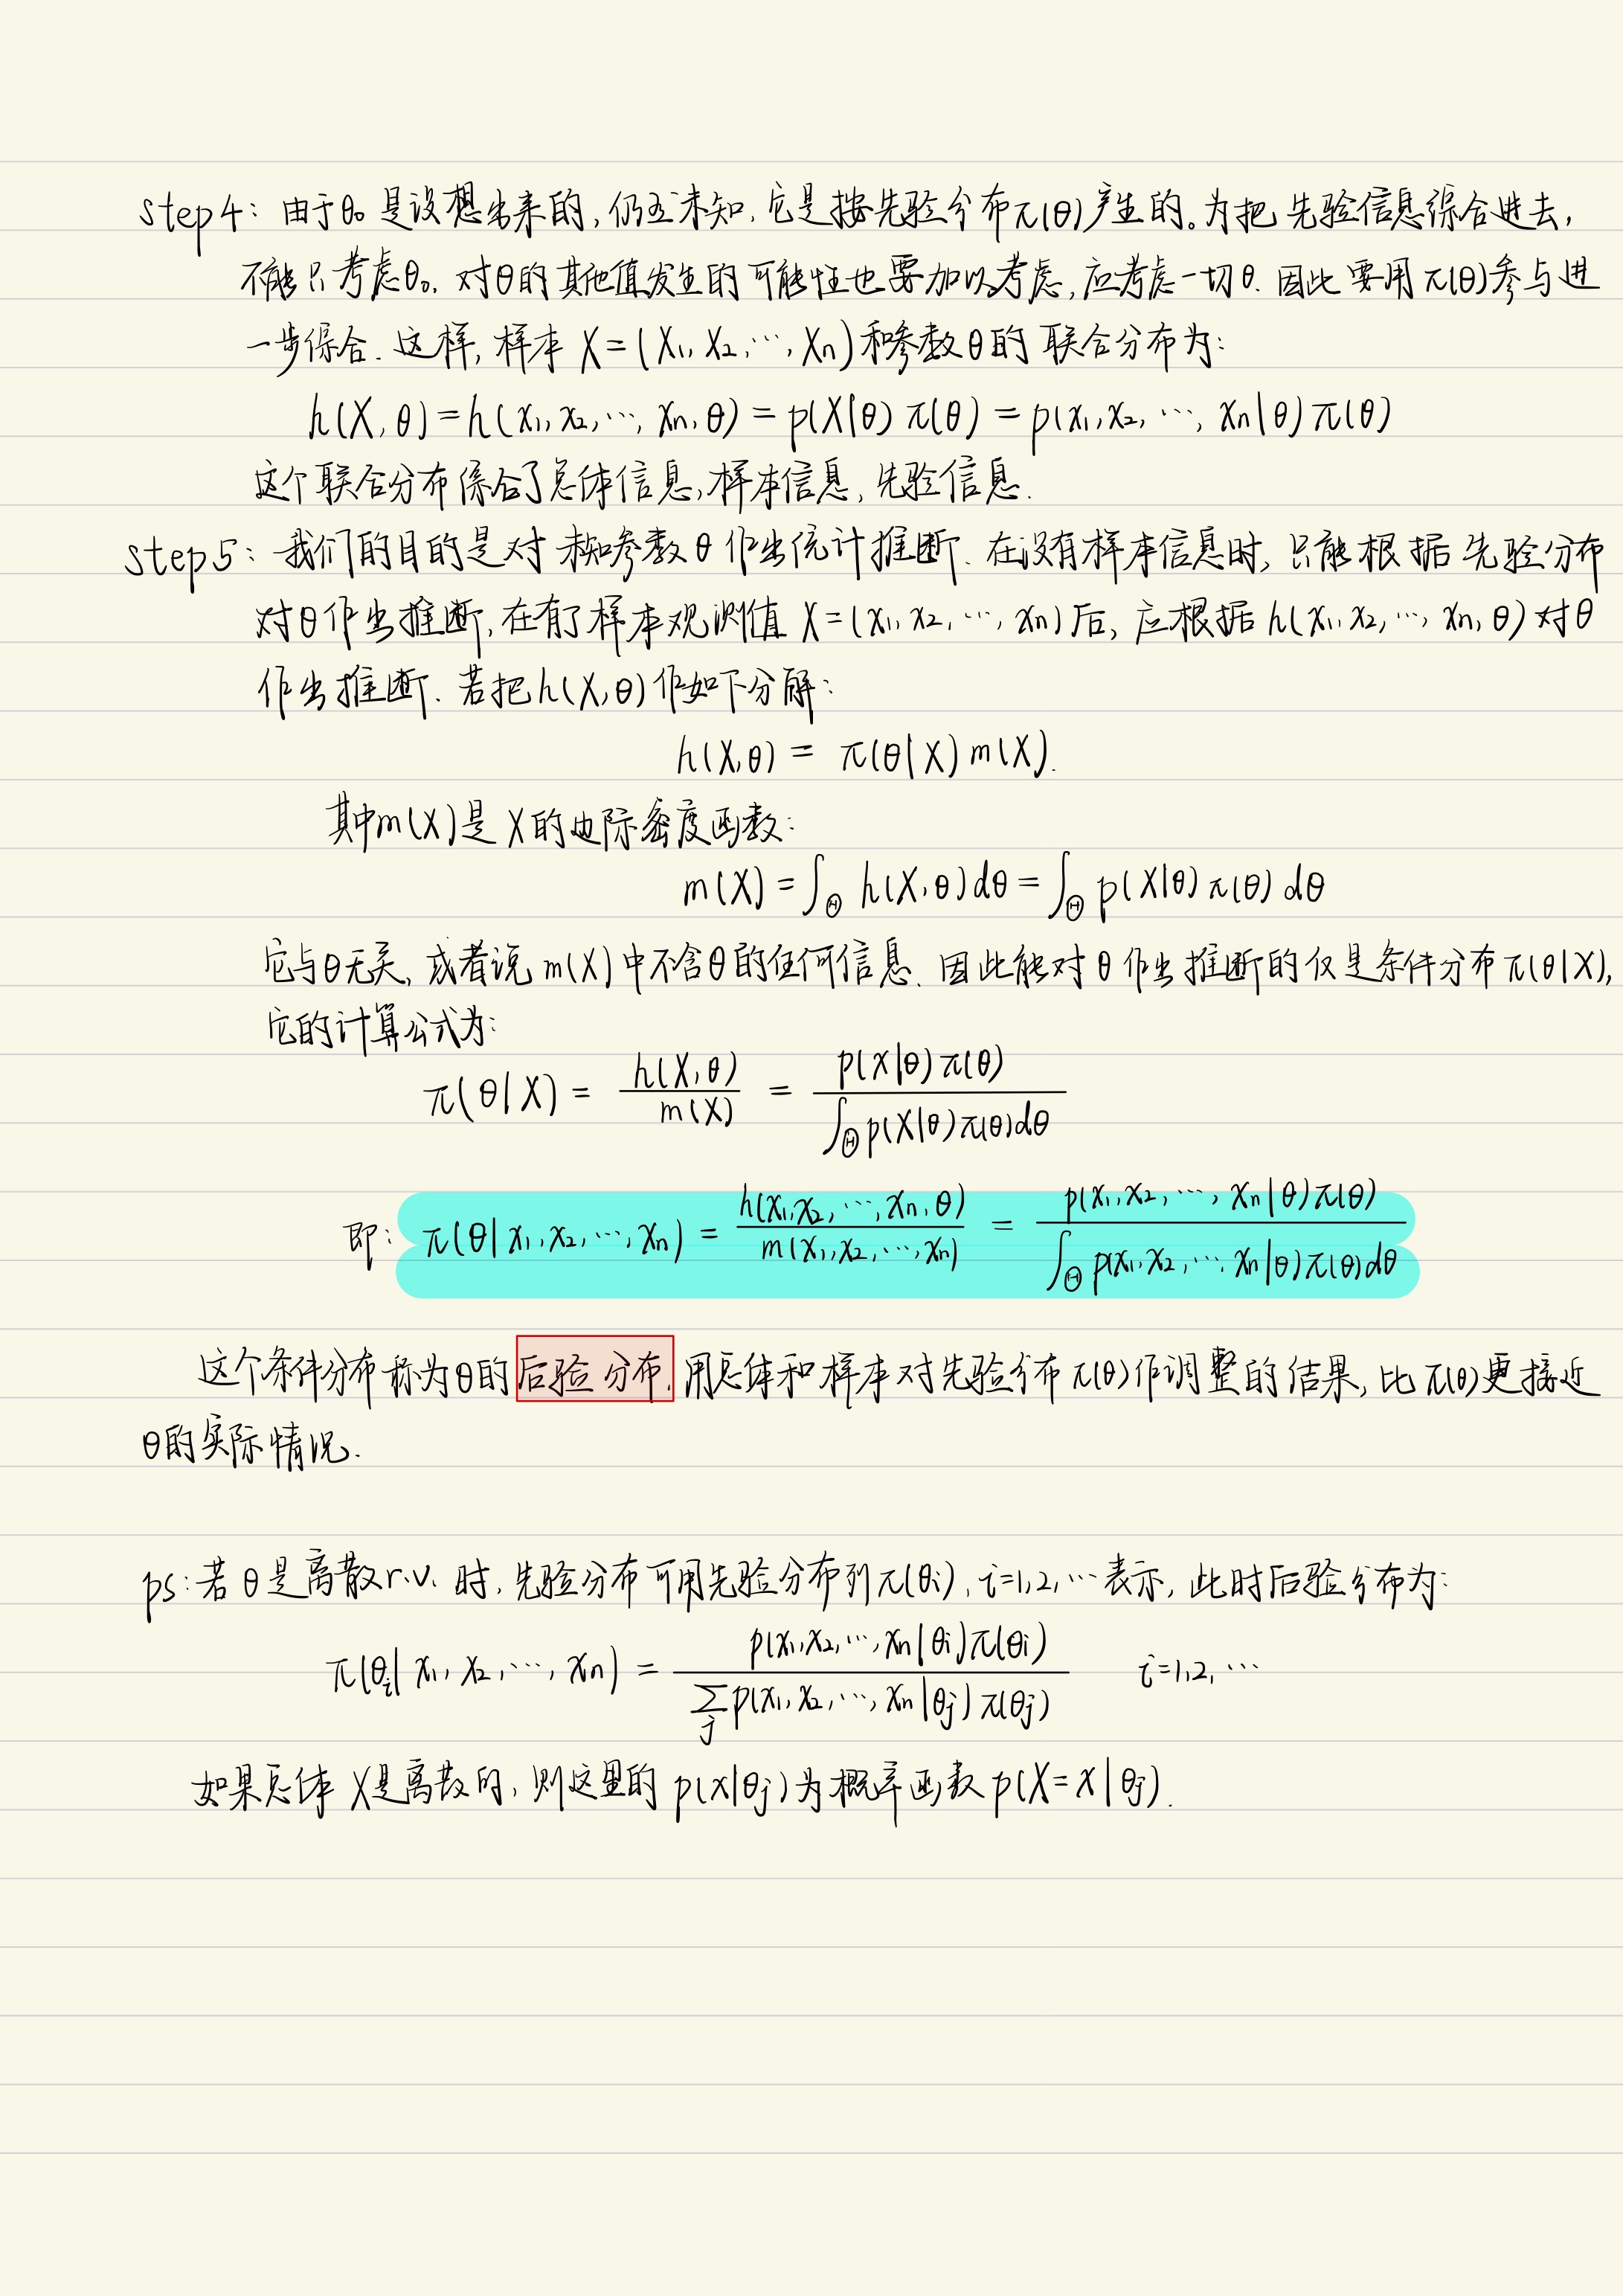 step4: 由于θ₀是设想出来的,仍互未知,它是按先验分布π(θ)产生的。为把先验信息综合进去,
不能只考虑θ₀. 对θ的其他值发生的可能性也要加以考虑,应考虑一切θ. 因此要用π(θ)参与进
一步综合. 这样,样本 X=(X₁, X₂, ⋯, Xn)和参数θ的联合分布为:
h(X,θ)=h(x₁,x₂,⋯,xn,θ)=p(X|θ)π(θ)=p(x₁,x₂,⋯,xn|θ)π(θ)
这个联合分布综合了总体信息,样本信息,先验信息.
step5: 我们的目的是对未知参数θ作出统计推断. 在没有样本信息时,只能根据先验分布
对θ作出推断,在有了样本观测值 X=(x₁,x₂,⋯,xn)后,应根据h(x₁,x₂,⋯,xn,θ)对θ
作出推断. 若把h(X,θ)作如下分解:
h(X,θ)= π(θ|X)m(X).
其中m(X)是X的边际密度函数:
m(X)=∫_Θ h(X,θ)dθ=∫_Θ p(X|θ)π(θ)dθ
它与θ无关,或者说m(X)中不含θ的任何信息. 因此能对θ作出推断的仅是条件分布π(θ|X),
它的计算公式为:
π(θ|X)= h(X,θ)/m(X) = p(X|θ)π(θ)/∫_Θ p(X|θ)π(θ)dθ
即: π(θ|x₁,x₂,⋯,xn)= h(x₁,x₂,⋯,xn,θ)/m(x₁,x₂,⋯,xn) = p(x₁,x₂,⋯,xn|θ)π(θ)/∫_Θ p(x₁,x₂,⋯,xn|θ)π(θ)dθ
这个条件分布称为θ的后验分布. 用总体和样本对先验分布π(θ)作调整的结果,比π(θ)更接近
θ的实际情况.
ps:若θ是离散r.v.时,先验分布可用先验分布列π(θi), i=1,2,⋯表示,此时后验分布为:
π(θi|x₁,x₂,⋯,xn)= p(x₁,x₂,⋯,xn|θi)π(θi)/∑_j p(x₁,x₂,⋯,xn|θj)π(θj) i=1,2,⋯
如果总体X是离散的,则这里的p(x|θj)为概率函数p(X=x|θj).